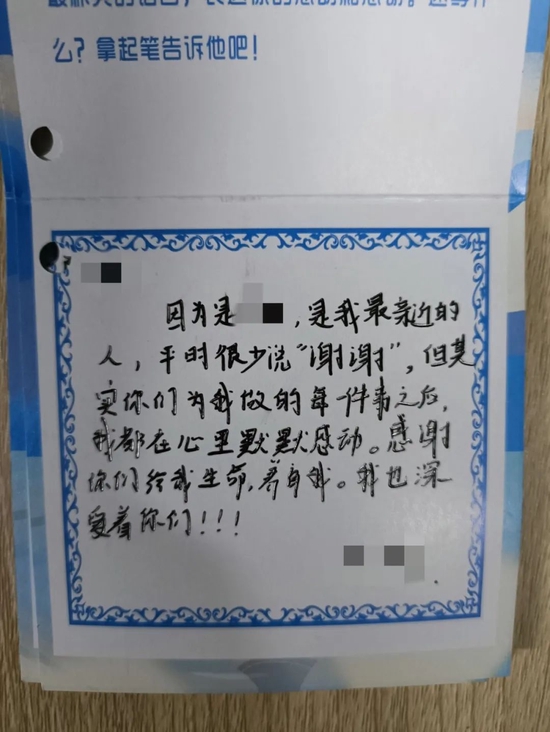 么？拿起笔告诉他吧！
因为是，是我最亲近的
人，平时很少说“谢谢”，但其
实你们为我做的每一件事之后，
我都在心里默默感动。感谢
你们给我生命，养育我。我也深
爱着你们！！！